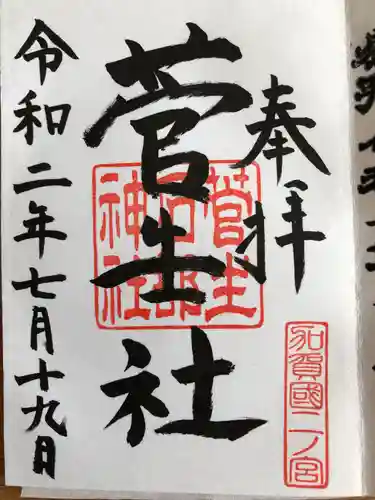 奉拝
加賀國二ノ宮
菅生社
菅生石部神社
令和二年七月十九日